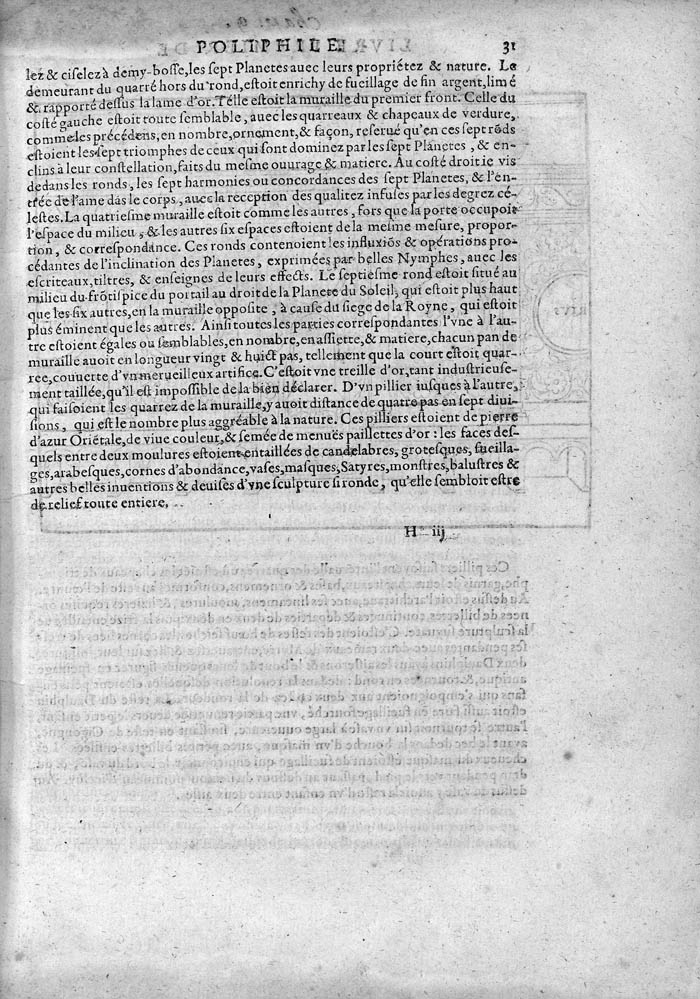 POLIPHILE. 31
lez & ciselez à demy-bosse, les sept Planetes auec leurs propriétez & nature. Le
demeurant du quarré hors du rond, estoit enrichy de fueillage de fin argent, limé
& rapporté dessus la lame d'or. Telle estoit la muraille du premier front. Celle du
costé gauche estoit toute semblable, auec les quarreaux & chapeaux de verdure,
comme les précédens, en nombre, ornement, & façon, reserué qu'en ces sept rōds
estoient les sept triomphes de ceux qui sont dominez par les sept Planetes, & en-
clins à leur constellation, faits du mesme ouurage & matiere. Au costé droit ie vis
dedans les ronds, les sept harmonies ou concordances des sept Planetes, & l'en-
trée de l'ame dās le corps, auec la reception des qualitez infuses par les degrez cé-
lestes. La quatriesme muraille estoit comme les autres, fors que la porte occupoit
l'espace du milieu, & les autres six espaces estoient de la mesme mesure, propor-
tion, & correspondance. Ces ronds contenoient les influxiōs & opérations pro-
cédantes de l'inclination des Planetes, exprimées par belles Nymphes, auec les
escriteaux, tiltres, & enseignes de leurs effects. Le septiesme rond estoit situé au
milieu du frōtispice du portail au droit de la Planete du Soleil, qui estoit plus haut
que les six autres, en la muraille opposite, à cause du siege de la Royne, qui estoit
plus éminent que les autres. Ainsi toutes les parties correspondantes l'vne à l'au-
tre estoient égales ou semblables, en nombre, en assiette, & matiere, chacun pan de
muraille auoit en longueur vingt & huict pas, tellement que la court estoit quar-
ree, couuerte d'vn merueilleux artifice. C'estoit vne treille d'or, tant industrieuse-
ment taillée, qu'il est impossible de la bien déclarer. D'vn pillier iusques à l'autre,
qui faisoient les quarrez de la muraille, y auoit distance de quatre pas en sept diui-
sions, qui est le nombre plus aggréable à la nature. Ces pilliers estoient de pierre
d'azur Oriētale, de viue couleur, & semée de menues paillettes d'or : les faces des-
quels entre deux moulures estoient entaillées de candelabres, grotesques, fueilla-
ges, arabesques, cornes d'abondance, vases, masques, Satyres, monstres, balustres &
autres belles inuentions & deuises d'vne sculpture si ronde, qu'elle sembloit estre
de relief toute entiere,
H iij